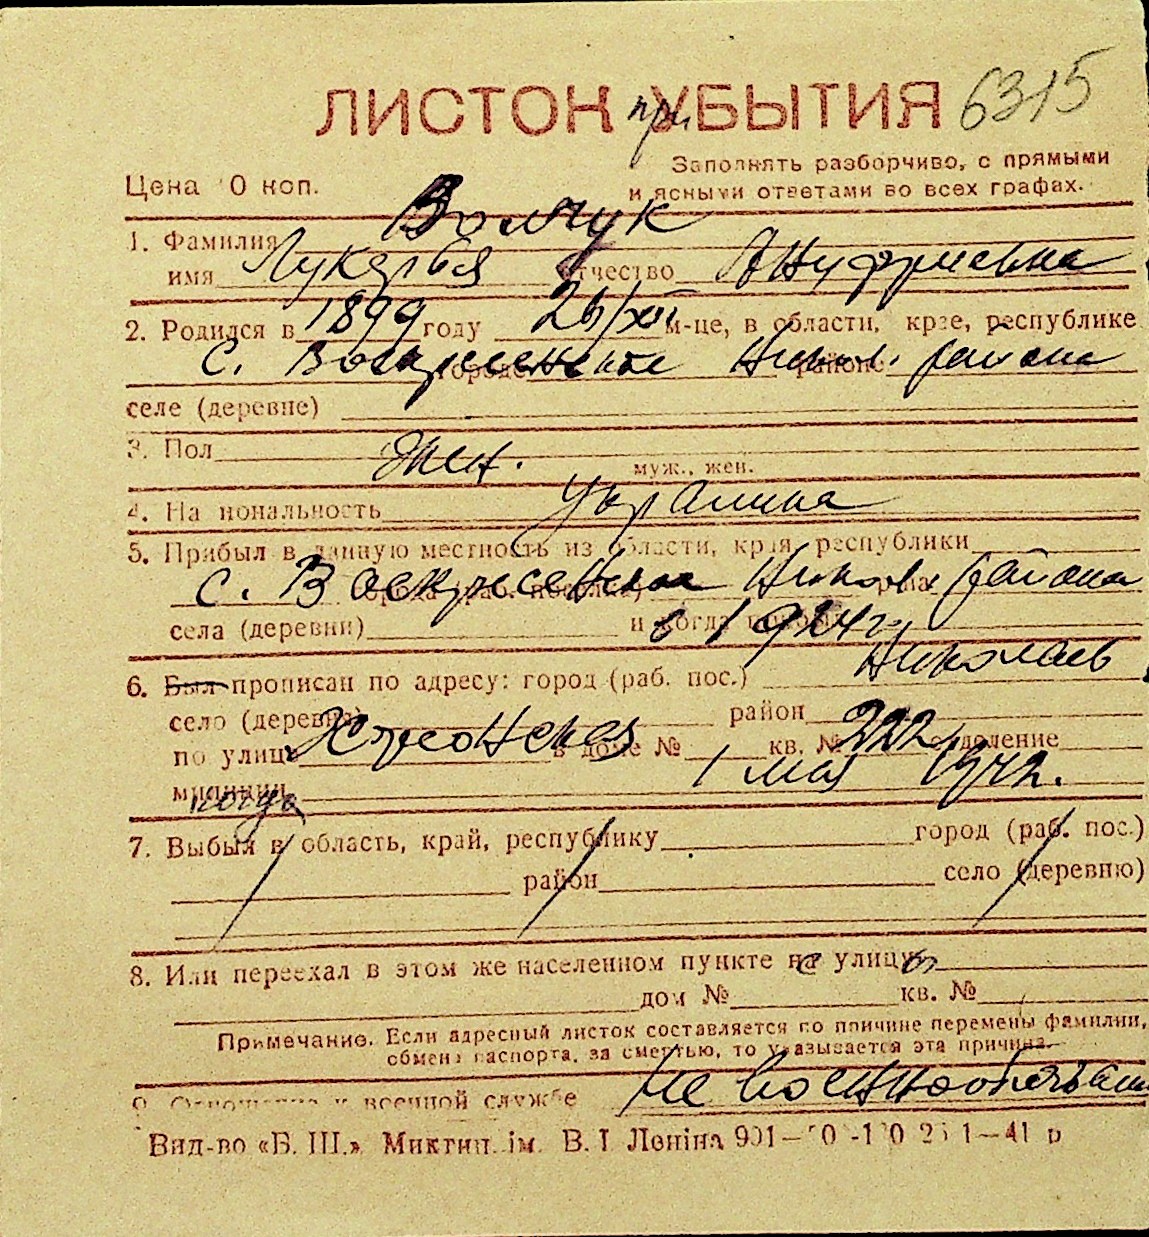 ЛИСТОК при УБЫТИЯ 6315
Заполнять разборчиво, с прямыми
и ясными ответами во всех графах.
Цена 0 коп.
1. Фамилия Волчук
имя Лукерья отчество Ануфриевна
2. Родился в 1899 году 26/XII м-це, в области, крае, республике
с. Воскресенское Никол. района
городе районе
селе (деревне)
3. Пол жен. муж., жен.
4. Национальность Украинка
5. Прибыл в данную местность из области, края, республики
с. Воскресенское Никол. района
села (деревни) и когда с 1924 г.
6. Был прописан по адресу: город (раб. пос.) Николаев
село (деревня) район
по улице Херсонская в доме № кв. № 222 отделение
милиции когда 1 мая 1942.
7. Выбыл в область, край, республику город (раб. пос.)
район село (деревню)
8. Или переехал в этом же населенном пункте на с улицу ы
дом № кв. №
Примечание. Если адресный листок составляется по причине перемены фамилии,
обмена паспорта, за смертью, то указывается эта причина.
9. Отношение к военной службе Не военнообязан
Вид-во «Б. Ш.» Миктип. ім. В. І Леніна 901— 0 -1 0 25 1—41 р